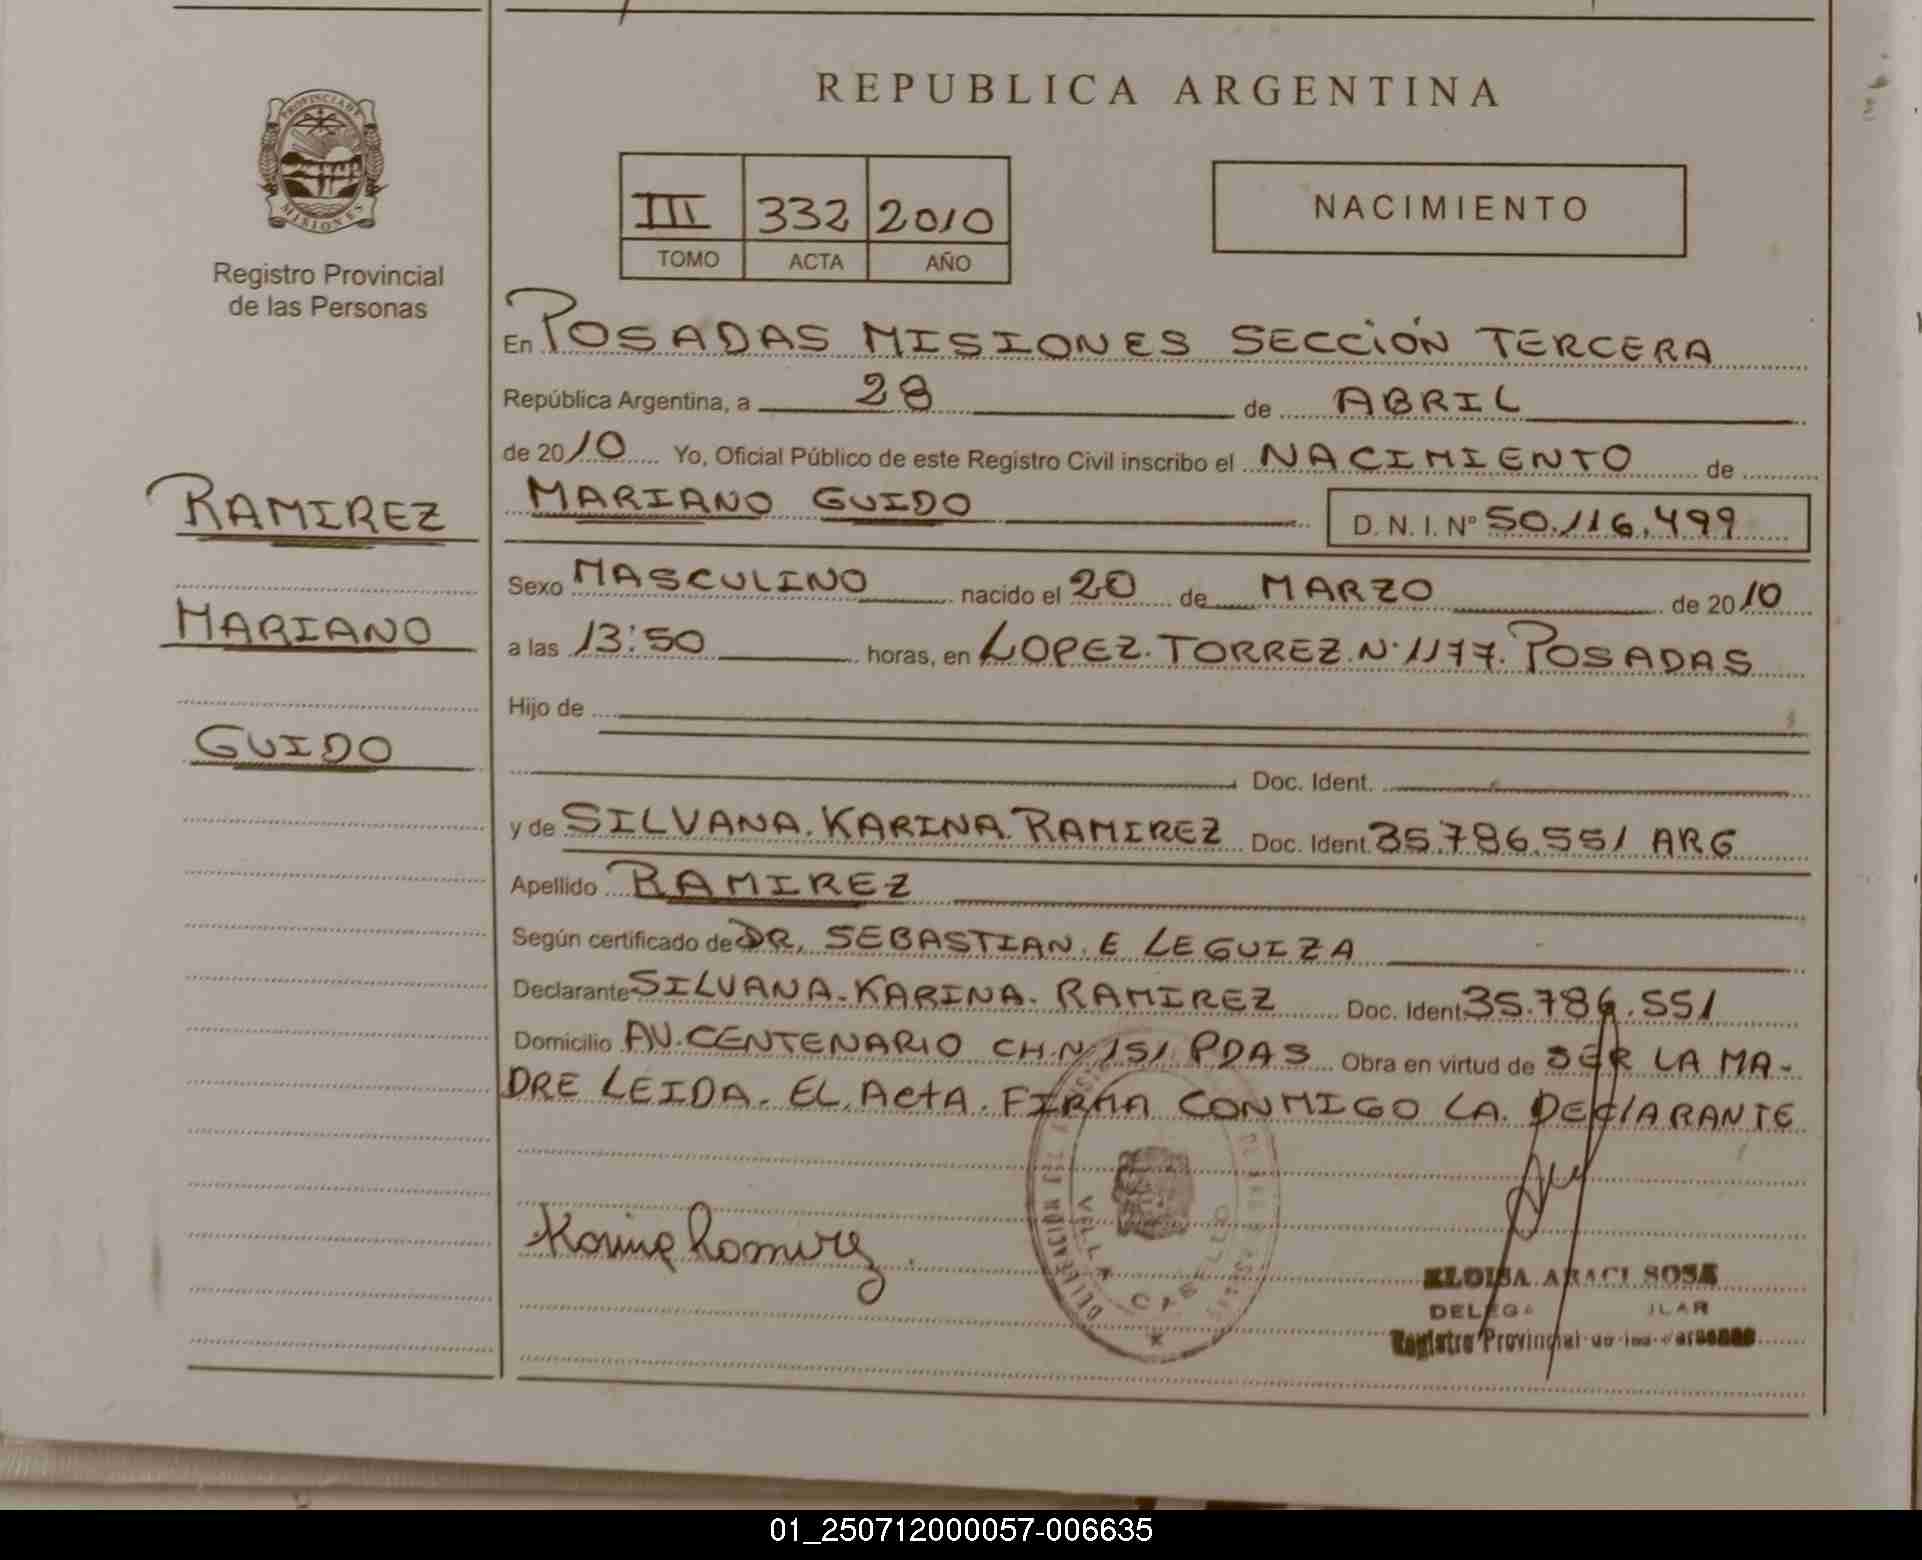 REPUBLICA ARGENTINA
PROVINCIA DE
MISIONES
Registro Provincial
de las Personas
III 332 2010
TOMO ACTA AÑO
NACIMIENTO
En POSADAS MISIONES SECCIÓN TERCERA
República Argentina, a 28 de ABRIL
de 2010 Yo, Oficial Público de este Registro Civil inscribo el NACIMIENTO de
MARIANO GUIDO D. N. I. Nº 50.116.499
RAMIREZ
MARIANO
GUIDO
Sexo MASCULINO nacido el 20 de MARZO de 2010
a las 13:50 horas, en LOPEZ. TORREZ. N. 1177. POSADAS
Hijo de
Doc. Ident.
y de SILVANA. KARINA. RAMIREZ Doc. Ident. 35.786.551 ARG
Apellido RAMIREZ
Según certificado de DR. SEBASTIAN. E LEGUIZA
Declarante SILVANA. KARINA. RAMIREZ Doc. Ident. 35.786.551
Domicilio AV. CENTENARIO CH. N 151 PDAS Obra en virtud de SER LA MA-
DRE LEIDA. EL ACTA. FIRMA CONMIGO LA. DECLARANTE
Karina Ramirez
VILLA CABELLO
ELOISA ARACI SOSA
Registro Provincial de las Personas
01_250712000057-006635